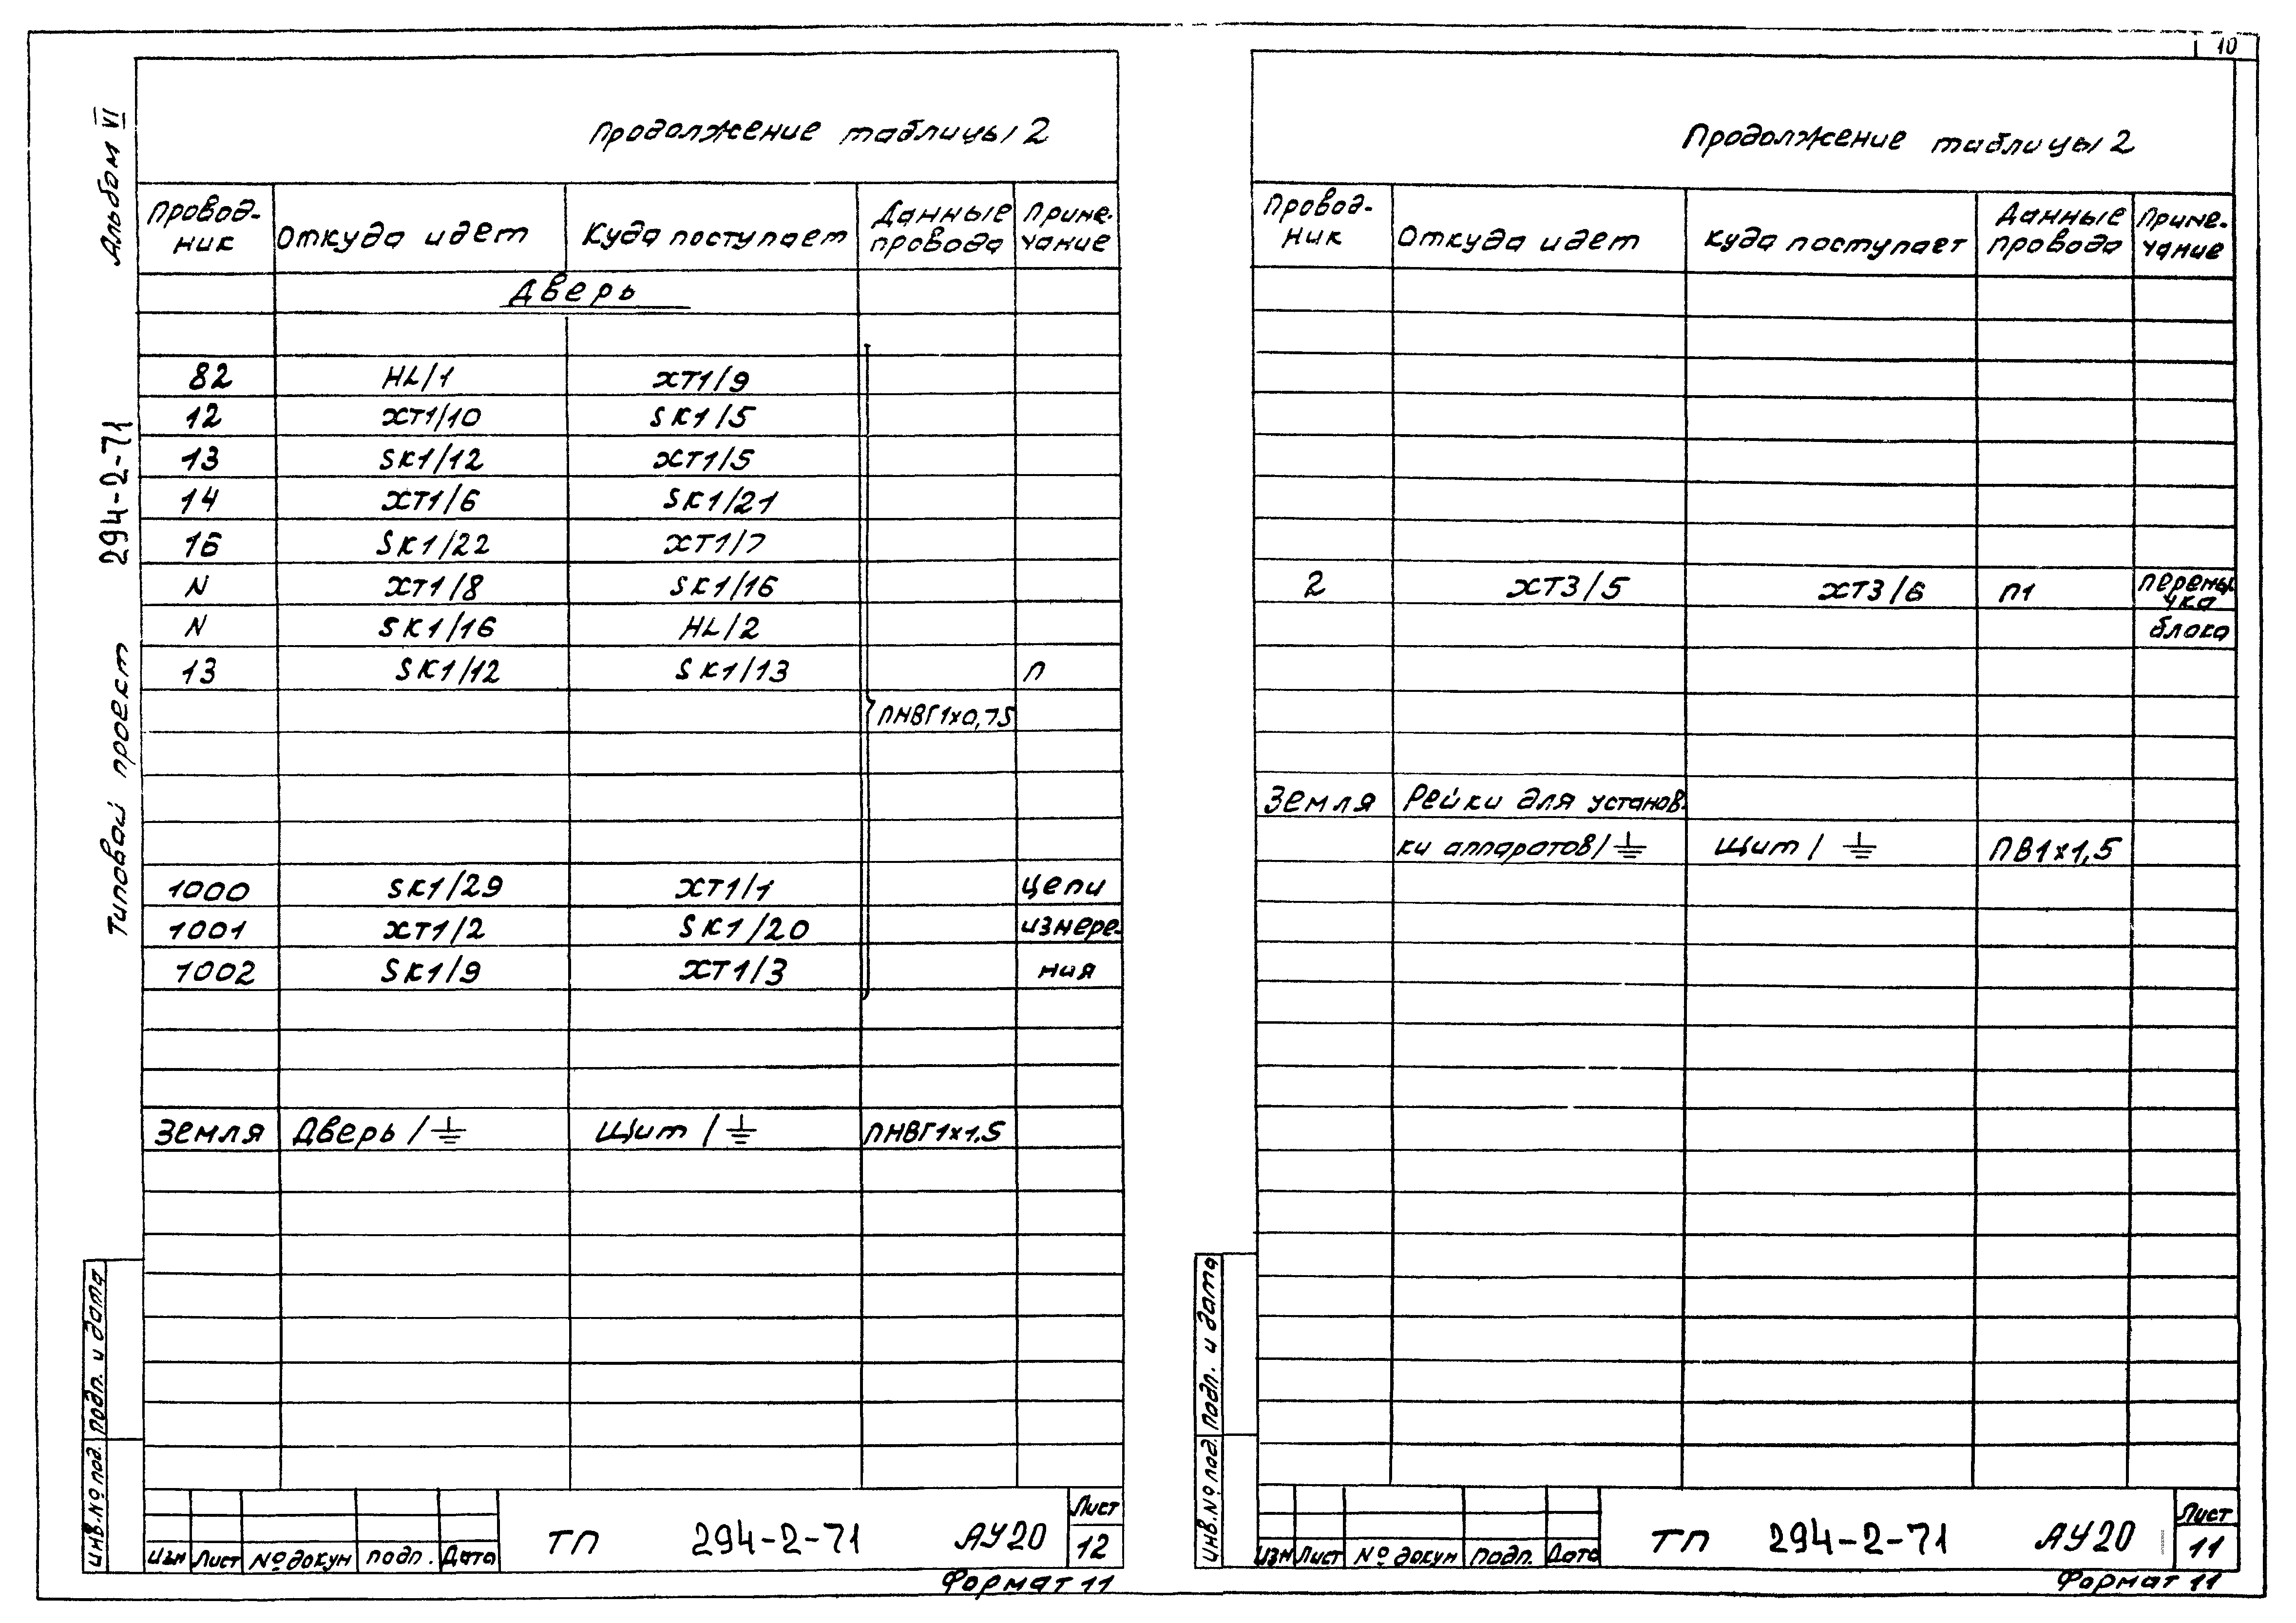 10
Альбом VI
Типовой проект 294-2-71
Продолжение таблицы 2
Провод-ник Откуда идет Куда поступает Данные провода Приме-чание
Дверь
82 HL/1 XT1/9
12 XT1/10 SK1/5
13 SK1/12 XT1/5
14 XT1/6 SK1/21
16 SK1/22 XT1/7
N XT1/8 SK1/16
N SK1/16 HL/2
13 SK1/12 SK1/13 п
ПНВГ1х0,75
1000 SK1/29 XT1/1 цепи
1001 XT1/2 SK1/20 измере-
1002 SK1/9 XT1/3 ния
Земля Дверь/⏚ Щит/⏚ ПНВГ1х1,5
Инв.№ под. Подп. и дата
Изм Лист № докун подп. Дата
ТП 294-2-71 АУ20
Лист
12
Формат 11
Продолжение таблицы 2
Провод-ник Откуда идет Куда поступает Данные провода Приме-чание
2 XT3/5 XT3/6 П1 перемы-
чка
блока
Земля Рейки для установ-
ки аппаратов/⏚ Щит/⏚ ПВ1х1,5
Инв.№ под. Подп. и дата
Изм Лист № докун Подп. Дата
ТП 294-2-71 АУ20
Лист
11
Формат 11